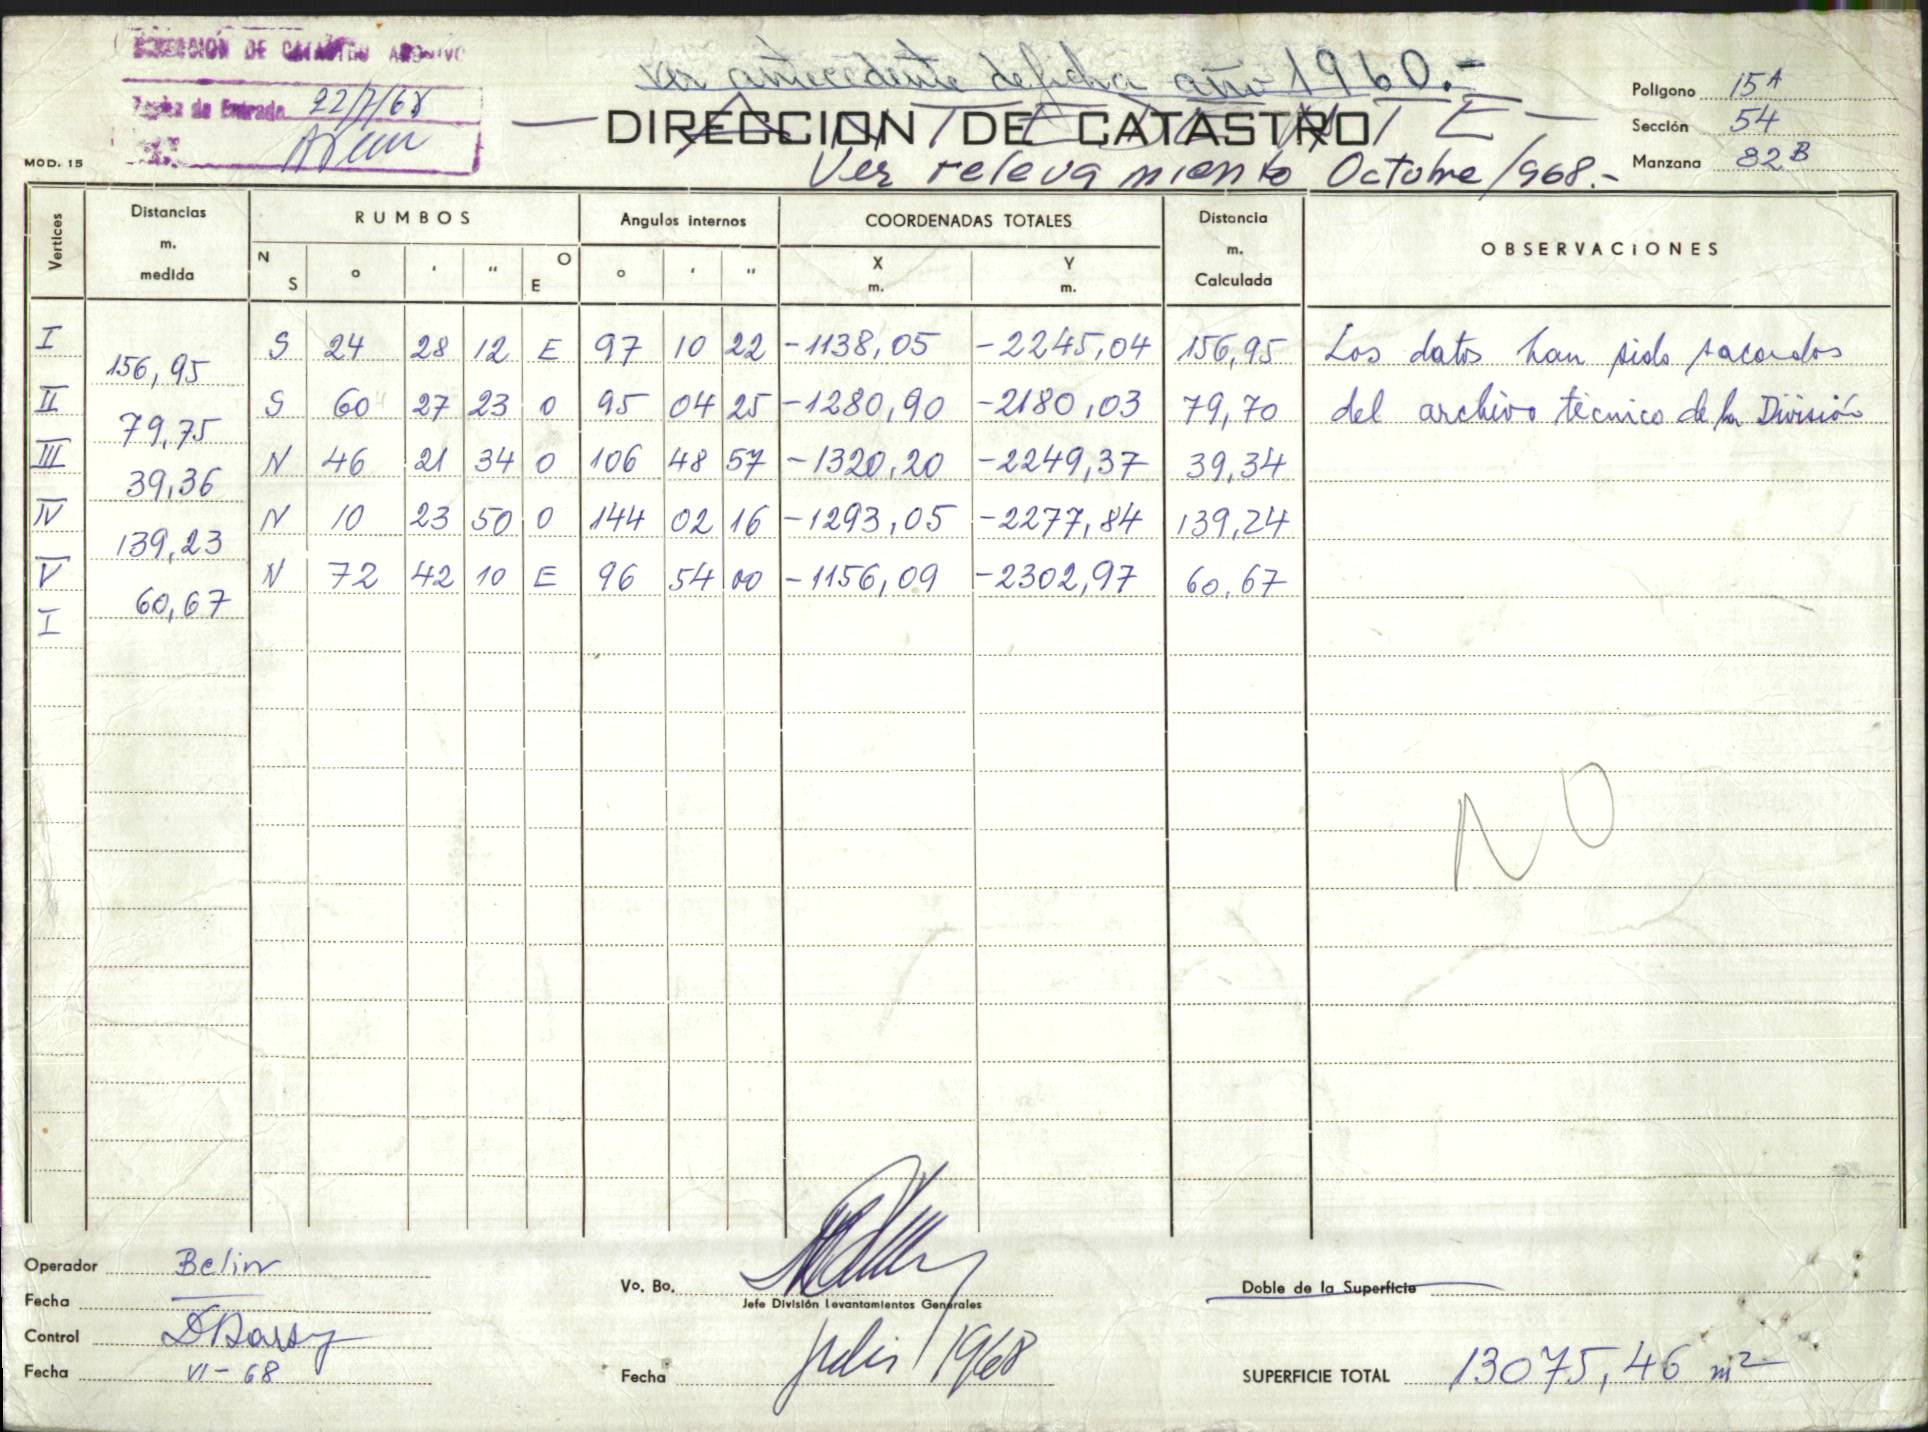 DIRECCION DE CATASTRO ARCHIVO
Fecha de Entrada 22/7/68
MOD. 15
ver antecedente de ficha año 1960.-
DIRECCION DE CATASTRO
Ver relevamiento Octubre/968.-
Polígono 15A
Sección 54
Manzana 82B
Vertices Distancias m. medida RUMBOS Angulos internos COORDENADAS TOTALES Distancia m. Calculada OBSERVACIONES
N S ° ' " O E ° ' " X m. Y m.
I S 24 28 12 E 97 10 22 -1138,05 -2245,04 156,95 Los datos han sido sacados
156,95
II S 60 27 23 O 95 04 25 -1280,90 -2180,03 79,70 del archivo técnico de la División
79,75
III N 46 21 34 O 106 48 57 -1320,20 -2249,37 39,34
39,36
IV N 10 23 50 O 144 02 16 -1293,05 -2277,84 139,24
139,23
V N 72 42 10 E 96 54 00 -1156,09 -2302,97 60,67
60,67
I
NO
Operador Belin
Fecha
Control
Fecha VI-68
Vo. Bo.
Jefe División Levantamientos Generales
Fecha Julio 1968
Doble de la Superficie
SUPERFICIE TOTAL 13075,46 m2